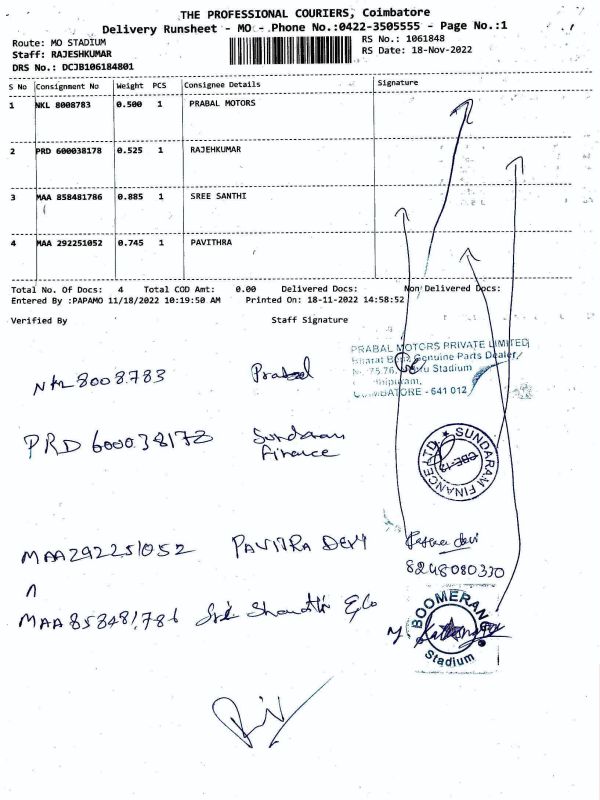 THE PROFESSIONAL COURIERS, Coimbatore
Delivery Runsheet - MO - Phone No.:0422-3505555 - Page No.:1
Route: MO STADIUM
RS No.: 1061848
Staff: RAJESHKUMAR
RS Date: 18-Nov-2022
DRS No.: DCJB106184801
S No Consignment No Weight PCS Consignee Details Signature
1 NKL 8008783 0.500 1 PRABAL MOTORS
2 PRD 600038178 0.525 1 RAJEHKUMAR
3 MAA 858481786 0.885 1 SREE SANTHI
4 MAA 292251052 0.745 1 PAVITHRA
Total No. Of Docs: 4 Total COD Amt: 0.00 Delivered Docs: Non Delivered Docs:
Entered By :PAPAMO 11/18/2022 10:19:50 AM Printed On: 18-11-2022 14:58:52
Verified By Staff Signature
PRABAL MOTORS PRIVATE LIMITED
Bharat Benz Genuine Parts Dealer,
Stadium
COIMBATORE - 641 012
NKL 8008783 Prabal
PRD 600038178 Sundaram
Finance
SUNDARAM FINANCE LTD.
MAA292251052 PAVITRA DEVI
8248080330
MAA858481786 Sri Shanthi
BOOMERANG
Stadium